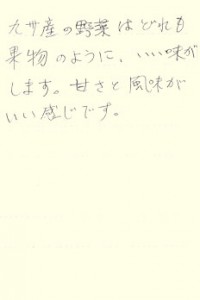 九州産の野菜はどれも
果物のように、いい味が
します。甘さと風味が
いい感じです。